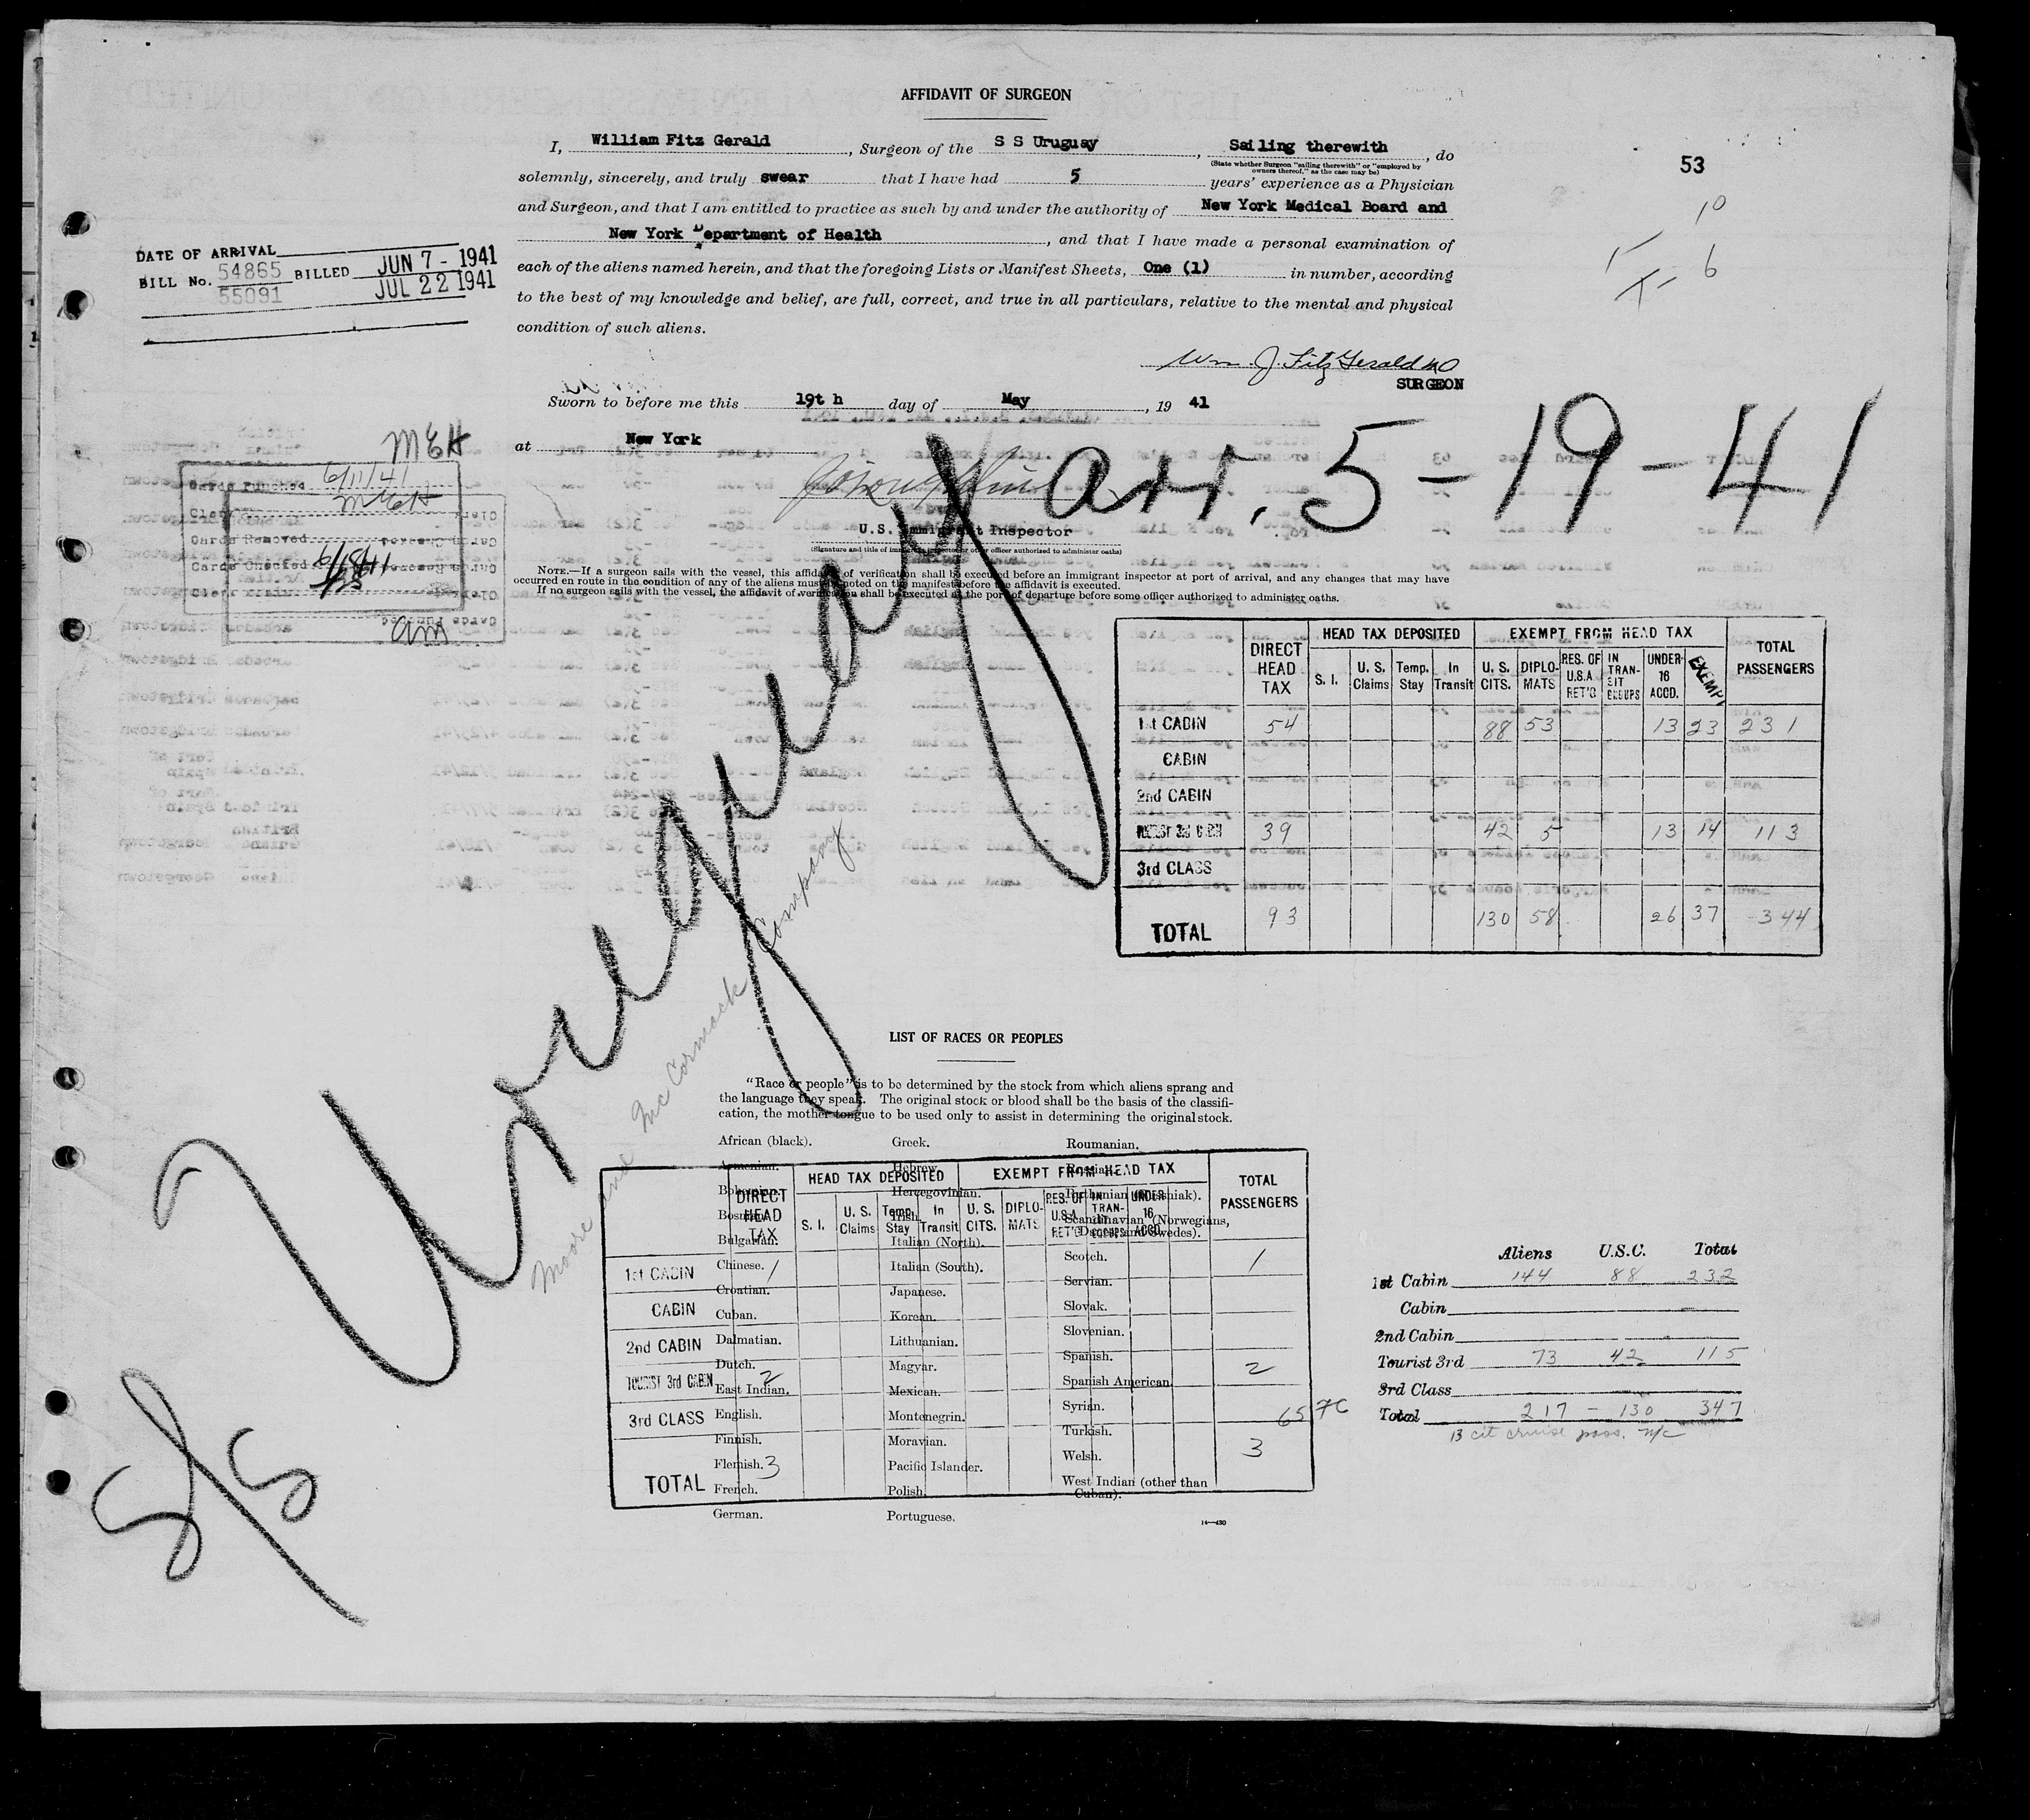 AFFIDAVIT OF SURGEON
I, William Fitz Gerald, Surgeon of the S S Uruguay, Sailing therewith, do
(State whether Surgeon "sailing therewith" or "employed by
owners thereof," as the case may be)
53
solemnly, sincerely, and truly swear that I have had 5 years' experience as a Physician
and Surgeon, and that I am entitled to practice as such by and under the authority of New York Medical Board and
New York Department of Health, and that I have made a personal examination of
each of the aliens named herein, and that the foregoing Lists or Manifest Sheets, One (1) in number, according
to the best of my knowledge and belief, are full, correct, and true in all particulars, relative to the mental and physical
condition of such aliens.
10
6
DATE OF ARRIVAL
BILL No. 54865 BILLED JUN 7 - 1941
55091 JUL 22 1941
Wm. J. FitzGerald MD
SURGEON
Sworn to before me this 19th day of May, 19 41
at New York
arr. 5-19-41
U.S. Immigrant Inspector
(Signature and title of immigrant inspector or other officer authorized to administer oaths)
NOTE.—If a surgeon sails with the vessel, this affidavit of verification shall be executed before an immigrant inspector at port of arrival, and any changes that may have
occurred en route in the condition of any of the aliens must be noted on the manifest before the affidavit is executed.
If no surgeon sails with the vessel, the affidavit of verification shall be executed at the port of departure before some officer authorized to administer oaths.
MEH
Cards Punched 6/11/41
Clerk MEH
Cards Removed
Cards Checked 6/18/41
am
S/S Uruguay
Moore and McCormack Company
DIRECT HEAD TAX
HEAD TAX DEPOSITED
EXEMPT FROM HEAD TAX
TOTAL PASSENGERS
S. I. U. S. Claims Temp. Stay In Transit U. S. CITS. DIPLO-MATS RES. OF U.S.A RET'G IN TRAN-SIT GROUPS UNDER-16 ACCD. EXEMP
1st CABIN 54 88 53 13 23 231
CABIN
2nd CABIN
TOURIST 3rd CABIN 39 42 5 13 14 113
3rd CLASS
TOTAL 93 130 58 26 37 344
LIST OF RACES OR PEOPLES
"Race or people" is to be determined by the stock from which aliens sprang and
the language they speak. The original stock or blood shall be the basis of the classifi-
cation, the mother tongue to be used only to assist in determining the original stock.
African (black).
Armenian.
Bohemian.
Bosnian.
Bulgarian.
Chinese.
Croatian.
Cuban.
Dalmatian.
Dutch.
East Indian.
English.
Finnish.
Flemish.
French.
German.
Greek.
Hebrew.
Hercegovinian.
Irish.
Italian (North).
Italian (South).
Japanese.
Korean.
Lithuanian.
Magyar.
Mexican.
Montenegrin.
Moravian.
Pacific Islander.
Polish.
Portuguese.
Roumanian.
Russian.
Ruthenian (Russniak).
Scandinavian (Norwegians,
Danes and Swedes).
Scotch.
Servian.
Slovak.
Slovenian.
Spanish.
Spanish American.
Syrian.
Turkish.
Welsh.
West Indian (other than
Cuban).
14—430
DIRECT HEAD TAX
HEAD TAX DEPOSITED
EXEMPT FROM HEAD TAX
TOTAL PASSENGERS
S. I. U. S. Claims Temp. Stay In Transit U. S. CITS. DIPLO-MATS RES. OF U.S.A RET'G IN TRAN-SIT GROUPS UNDER 16 ACCD.
1st CABIN 1 1
CABIN
2nd CABIN
TOURIST 3rd CABIN 2 2
3rd CLASS
TOTAL 3 3
65 7C
Aliens U.S.C. Total
1st Cabin 144 88 232
Cabin
2nd Cabin
Tourist 3rd 73 42 115
3rd Class
Total 217 - 130 347
13 cit cruise pass. n/c